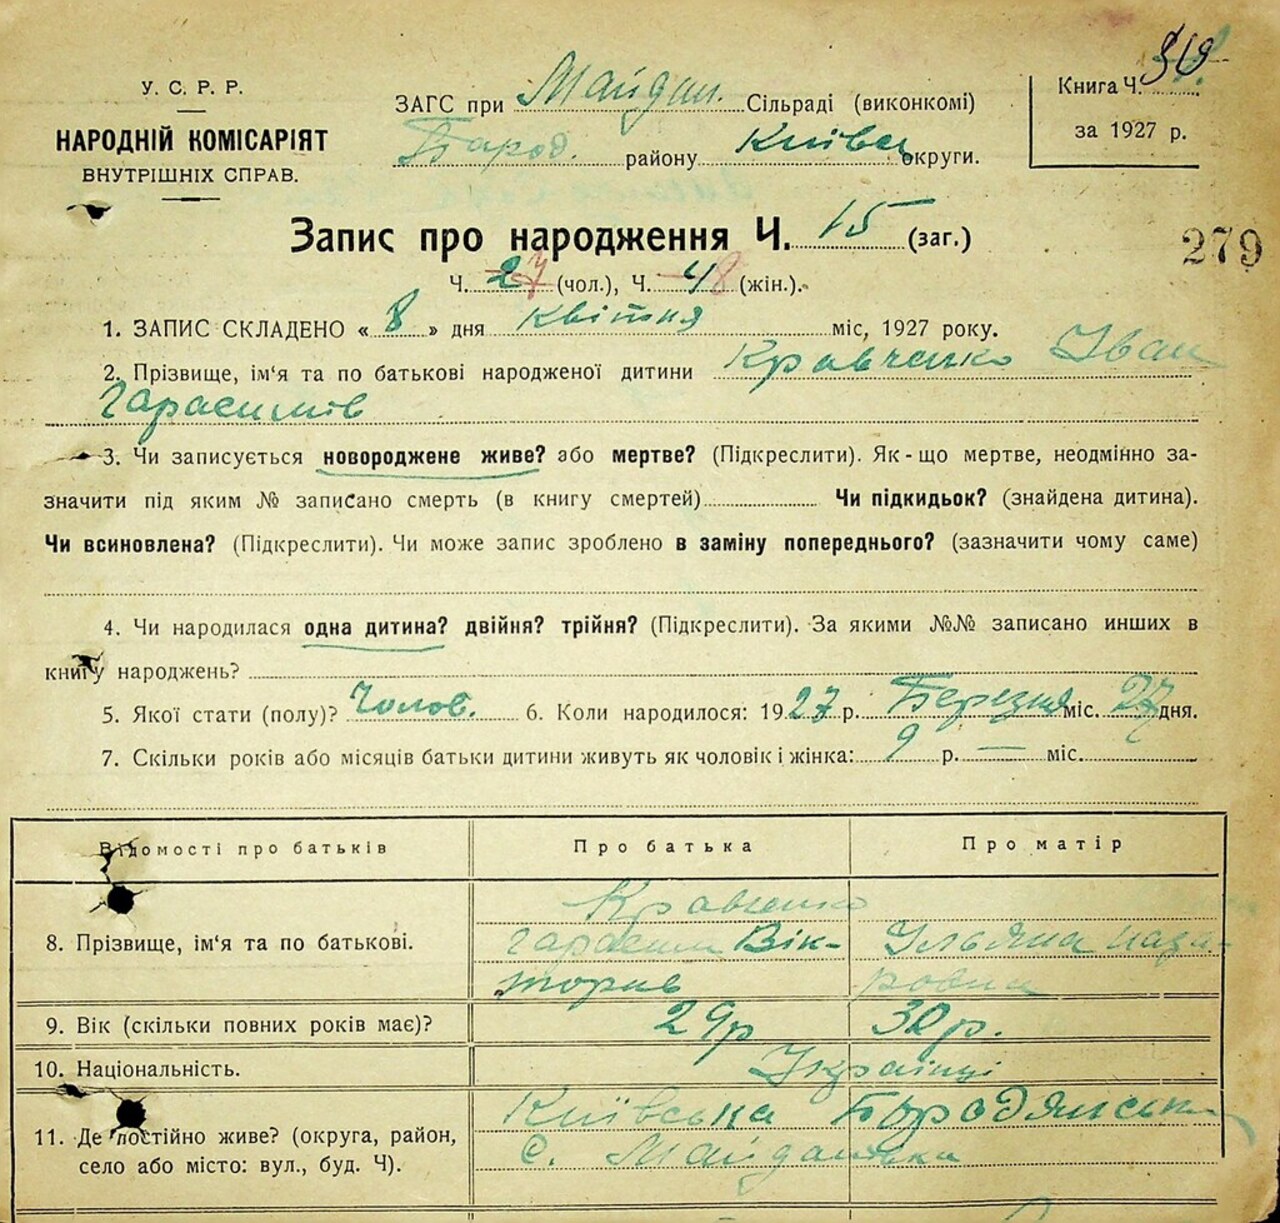 У. С. Р. Р.
НАРОДНІЙ КОМІСАРІЯТ
ВНУТРІШНІХ СПРАВ.
ЗАГС при Майдан. Сільраді (виконкомі)
Бород. району Київськ округи.
Книга Ч.
за 1927 р.
279
Запис про народження Ч. 15 (заг.)
Ч. 7 (чол.), Ч. 8 (жін.).
1. ЗАПИС СКЛАДЕНО « 8 » дня квітня міс, 1927 року.
2. Прізвище, ім‘я та по батькові народженої дитини Кравченко Іван
Гарасимів
3. Чи записується новороджене живе? або мертве? (Підкреслити). Як-що мертве, неодмінно за-
значити під яким № записано смерть (в книгу смертей) Чи підкидьок? (знайдена дитина).
Чи всиновлена? (Підкреслити). Чи може запис зроблено в заміну попереднього? (зазначити чому саме)
4. Чи народилася одна дитина? двійня? трійня? (Підкреслити). За якими №№ записано инших в
книгу народжень?
5. Якої стати (полу)? Чолов. 6. Коли народилося: 1927 р. Березня міс. 27 дня.
7. Скільки років або місяців батьки дитини живуть як чоловік і жінка: 9 р. — міс.
Відомості про батьків Про батька Про матір
Кравченко
8. Прізвище, ім‘я та по батькові. Гарасим Вік- Ульяна Наза-
торив ровна
9. Вік (скільки повних років має)? 29р 30р.
10. Національність. Українці
Київська Бородянськ
11. Де постійно живе? (округа, район,
село або місто: вул., буд. Ч). С. Майданівка